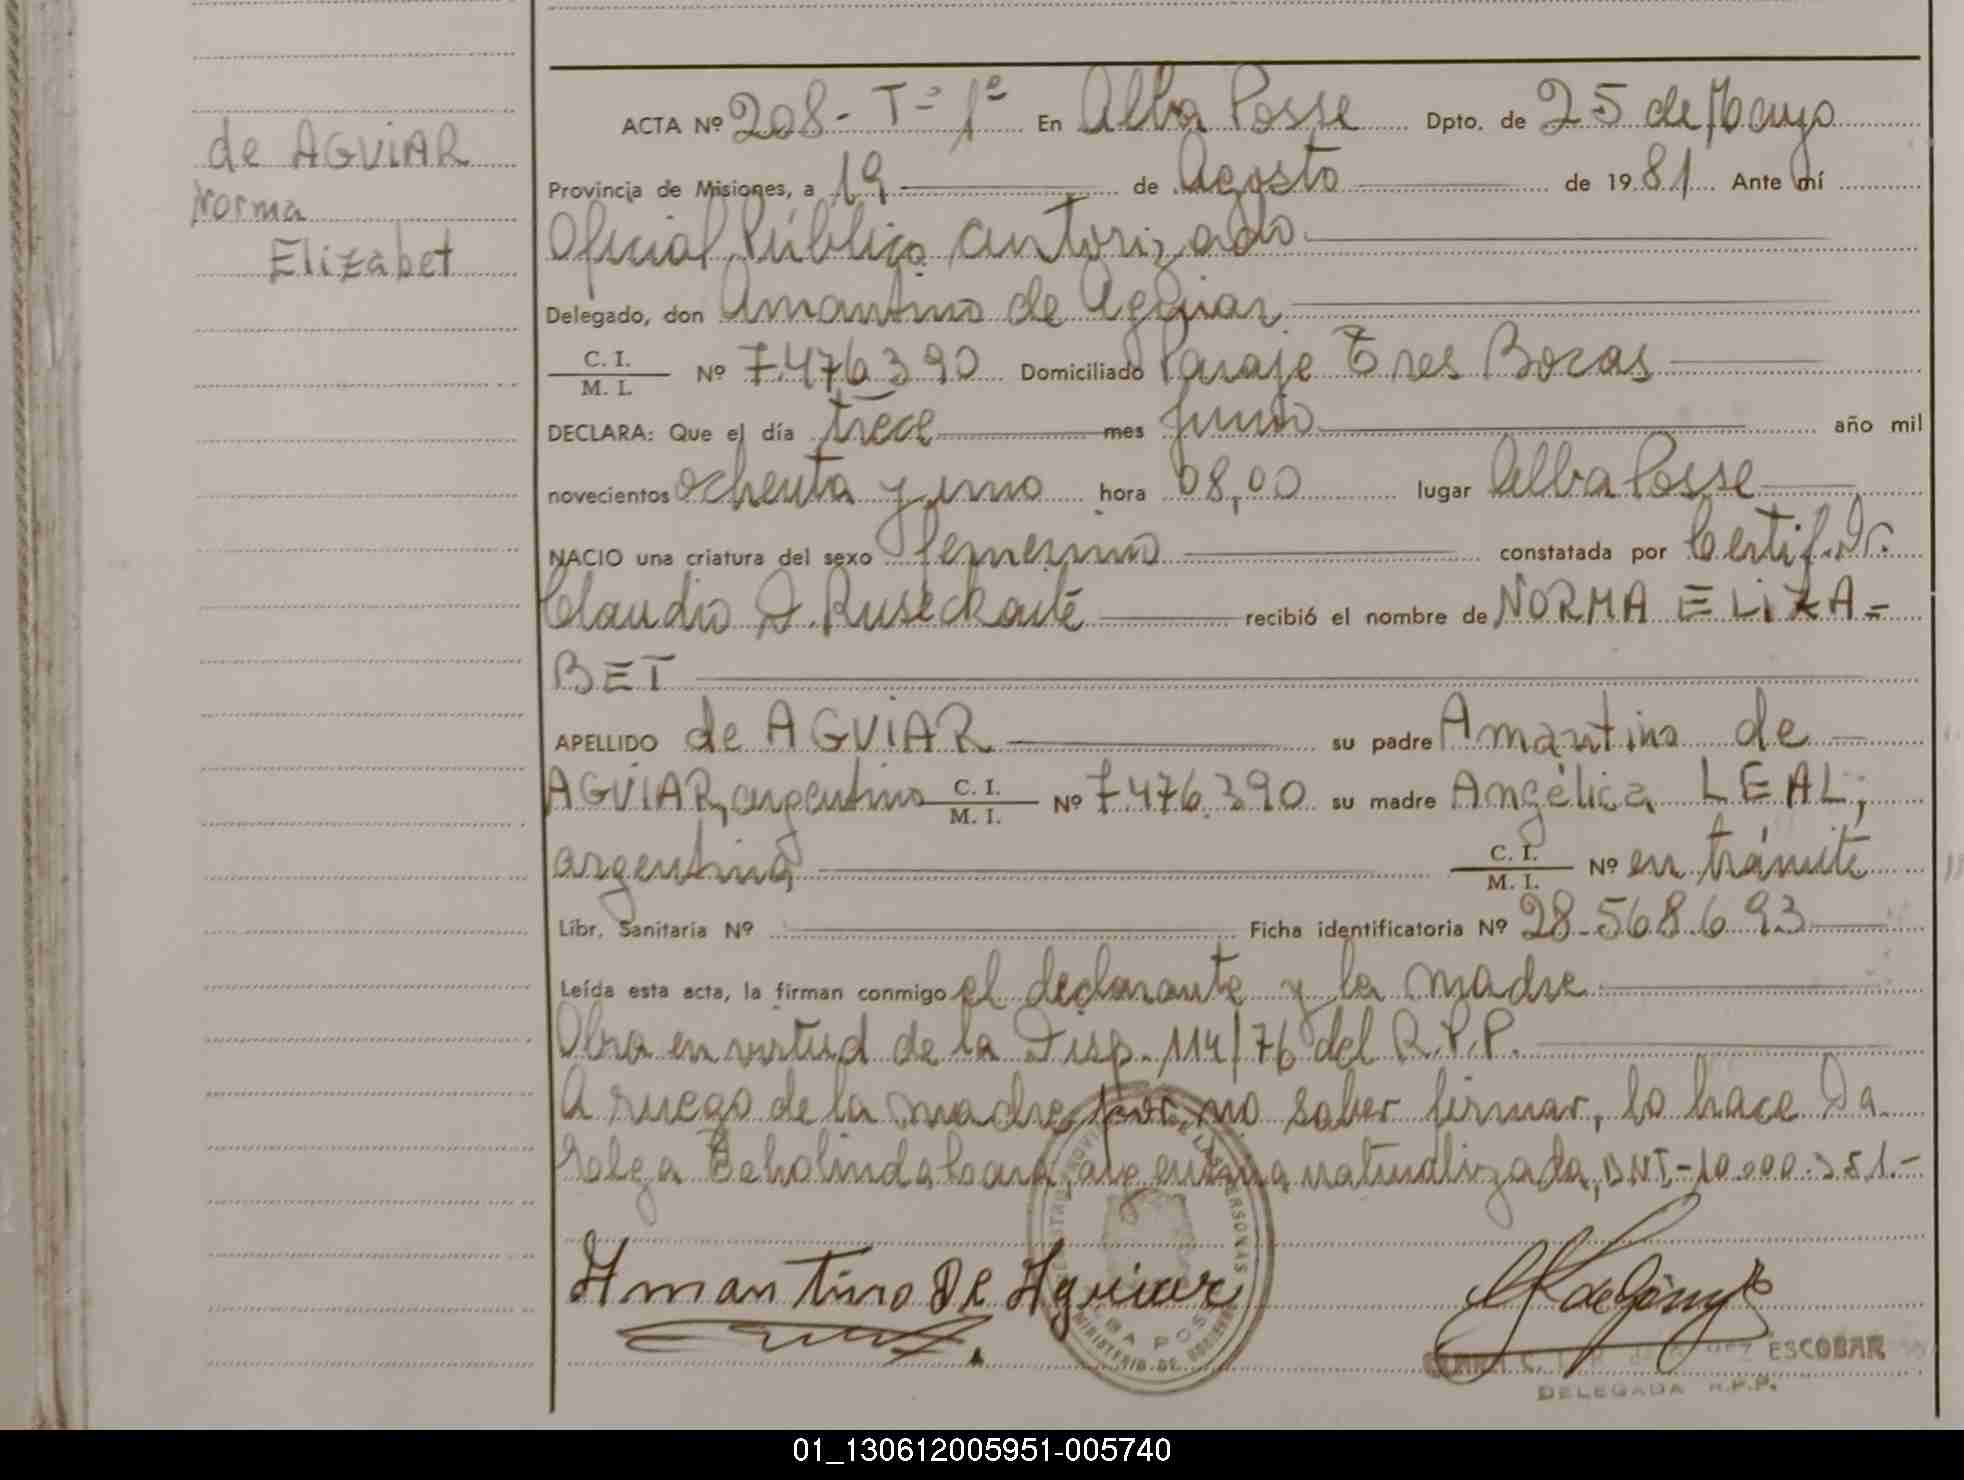 de AGUIAR
Norma
Elizabet
ACTA Nº 208 - Tº 1º En Alba Posse Dpto. de 25 de Mayo
Provincia de Misiones, a 19 de Agosto de 1981 Ante mí
Oficial Público autorizado
Delegado, don Amantino de Aguiar
C. I. / M. I. Nº 7.476.390 Domiciliado Paraje Tres Bocas
DECLARA: Que el día trece mes junio año mil
novecientos ochenta y uno hora 08,00 lugar Alba Posse
NACIO una criatura del sexo femenino constatada por Certif. Dr.
Claudio D. Ruseckaite recibió el nombre de NORMA ELIZA=
BET
APELLIDO de AGUIAR su padre Amantino de
AGUIAR, argentino C. I. / M. I. Nº 7.476.390 su madre Angélica LEAL,
argentina C. I. / M. I. Nº en trámite
Libr. Sanitaria Nº Ficha identificatoria Nº 28.568.693
Leída esta acta, la firman conmigo el declarante y la madre
Obra en virtud de la Disp. 114/76 del R.P.P.
A ruego de la madre por no saber firmar, lo hace Da.
argentina naturalizada, DNI-10.000.351.-
Amantino De Aguiar
ESCOBAR
DELEGADA R.P.P.
01_130612005951-005740